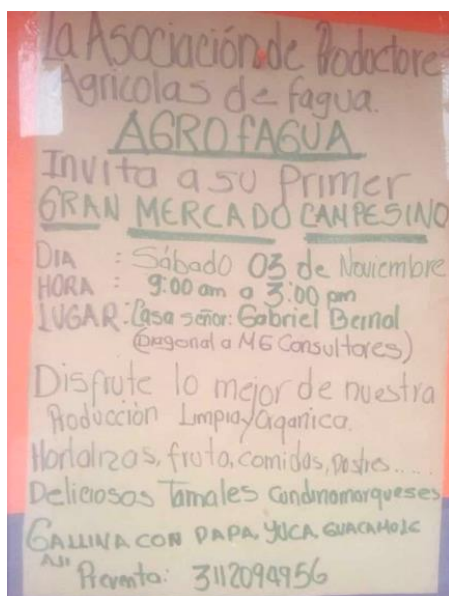 La Asociación de Productore
Agricolas de fagua.
AGROFAGUA
Invita a su Primer
GRAN MERCADO CANPESINO
DIA : Sábado 03 de Noviembre
HORA : 9:00 am a 3:00 pm
LUGAR: Casa señor: Gabriel Bernal
(Diagonal a MG Consultores)
Disfrute lo mejor de nuestra
Producción Limpia/Organica.
Hortalizas, fruta, comidas, Postres.....
Deliciosos Tamales Cundinamarqueses
GALLINA CON PAPA, YUCA, GUACAMOLE
AJI
Preventa: 3112094956